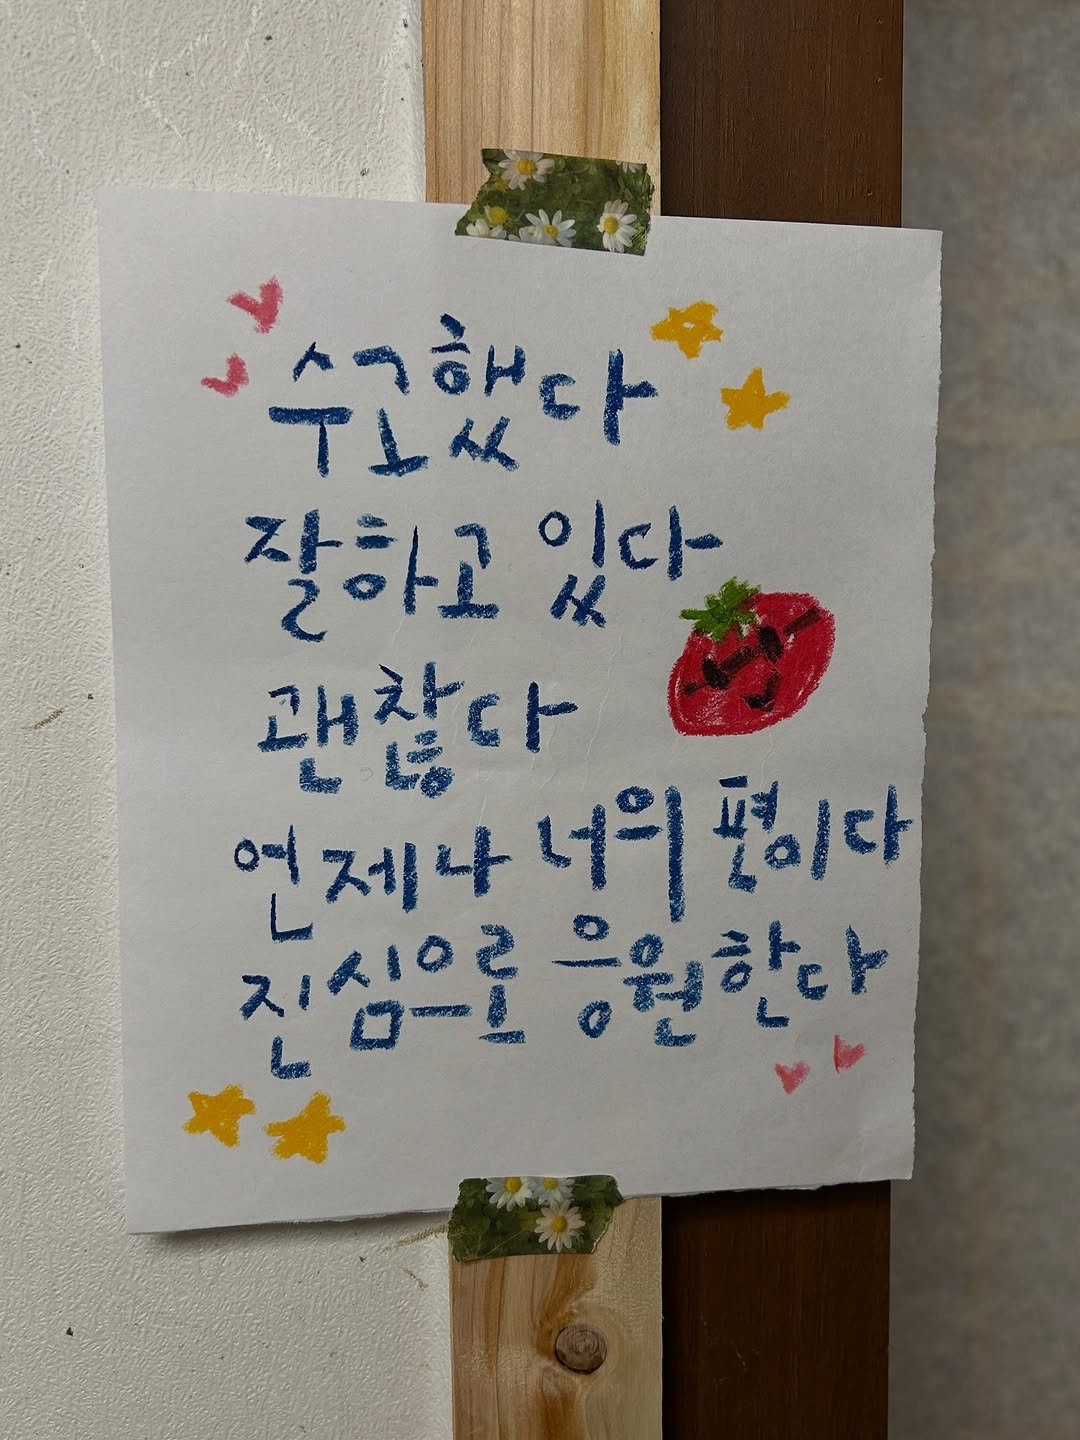 수고했다
잘하고 있다
괜찮다
언제나 너의 편이다
진심으로 응원한다